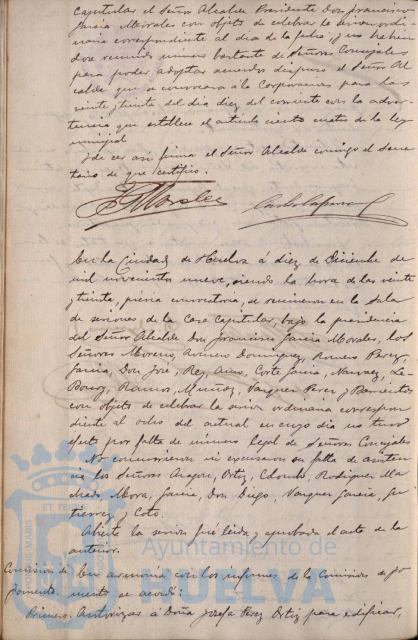 Capitular el Señor Alcalde Presidente Don Francisco
García Morales con objeto de celebrar la sesion ordi-
naria correspondiente al dia de la fecha, y no habien
dose reunido número bastante de Señores Concejales
para poder adoptar acuerdos dispuso el Señor Al
calde que se convocara á la Corporacion para las
veinte y treinta del dia diez del corriente con la adver-
tencia que establece el artículo ciento cuatro de la ley
municipal
Y de ser así firma el Señor Alcalde conmigo el Secre
tario de que certifico.
En la Ciudad de Huelva á diez de Diciembre de
mil novecientos nueve, siendo la hora de las veinte
y treinta, previa convocatoria, se reunieron en la Sala
de sesiones de la Casa Capitular, bajo la presidencia
del Señor Alcalde Don Francisco García Morales, los
Señores Moreno, Dominguez, Romero Perez,
García, Don José, Rey, Corte García, Narvaez,
Ramos, Muñoz, Vazquez Perez y Barrientos
con objeto de celebrar la sesion ordinaria correspon
diente al ocho del actual en cuyo dia no tuvo
efecto por falta de número legal de Señores Concejales
No concurrieron ni excusaron su falta de asisten
cia los Señores Aragon, Ortiz, Rodriguez Ma
chado, Mora, García, Don Diego, Vazquez García, Gu
tierrez y Coto.
Abierta la sesion fué leida y aprobada el acta de la
anterior.
Comision de Fo
mento
En armonía con los informes de la Comision de Fo
mento se acordó:
Primero: Autorizar á Doña Josefa Perez Ortiz para edificar,
Ayuntamiento de
HUELVA